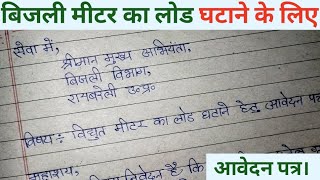 बिजली मीटर का लोड घटाने के लिए
सेवा में,
श्रीमान मुख्य अभियंता,
बिजली विभाग,
रायबरेली उ०प्र०
विषय:- विद्युत मीटर का लोड घटाने हेतु आवेदन पत्र
महाशय,
निवेदन है कि
आवेदन पत्र।